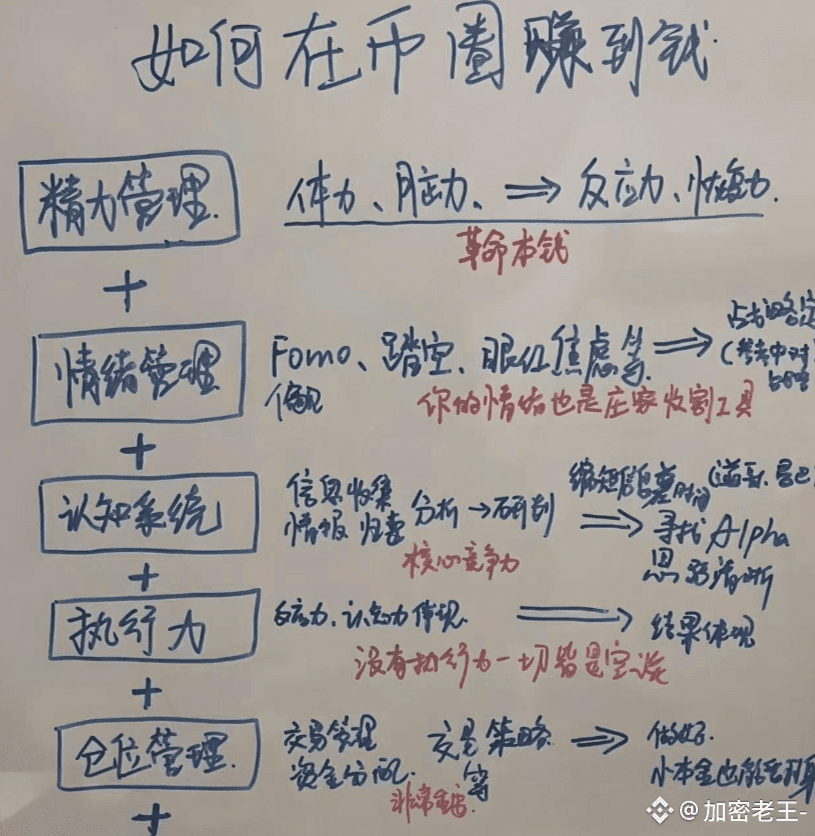 如何在币圈赚到钱
精力管理
体力、脑力、⟹ 反应力、恢复力.
革命本钱
+
情绪管理
Fomo、踏空、眼红焦虑等 ⟹
偏见
(参考中对
你的情绪也是庄家收割工具
+
认知系统
信息收集
情报 归纳 分析→研判 ⟹
缩短 时间
寻找 Alpha
思路清晰
核心竞争力
+
执行力
反应力、认知力体现. ⟹ 结果体现
没有执行力一切皆是空谈
+
仓位管理.
交易管理 交易策略 ⟹ 做好.
资金分配. 等 小本金也能
非常重要.
+
@加密老王-